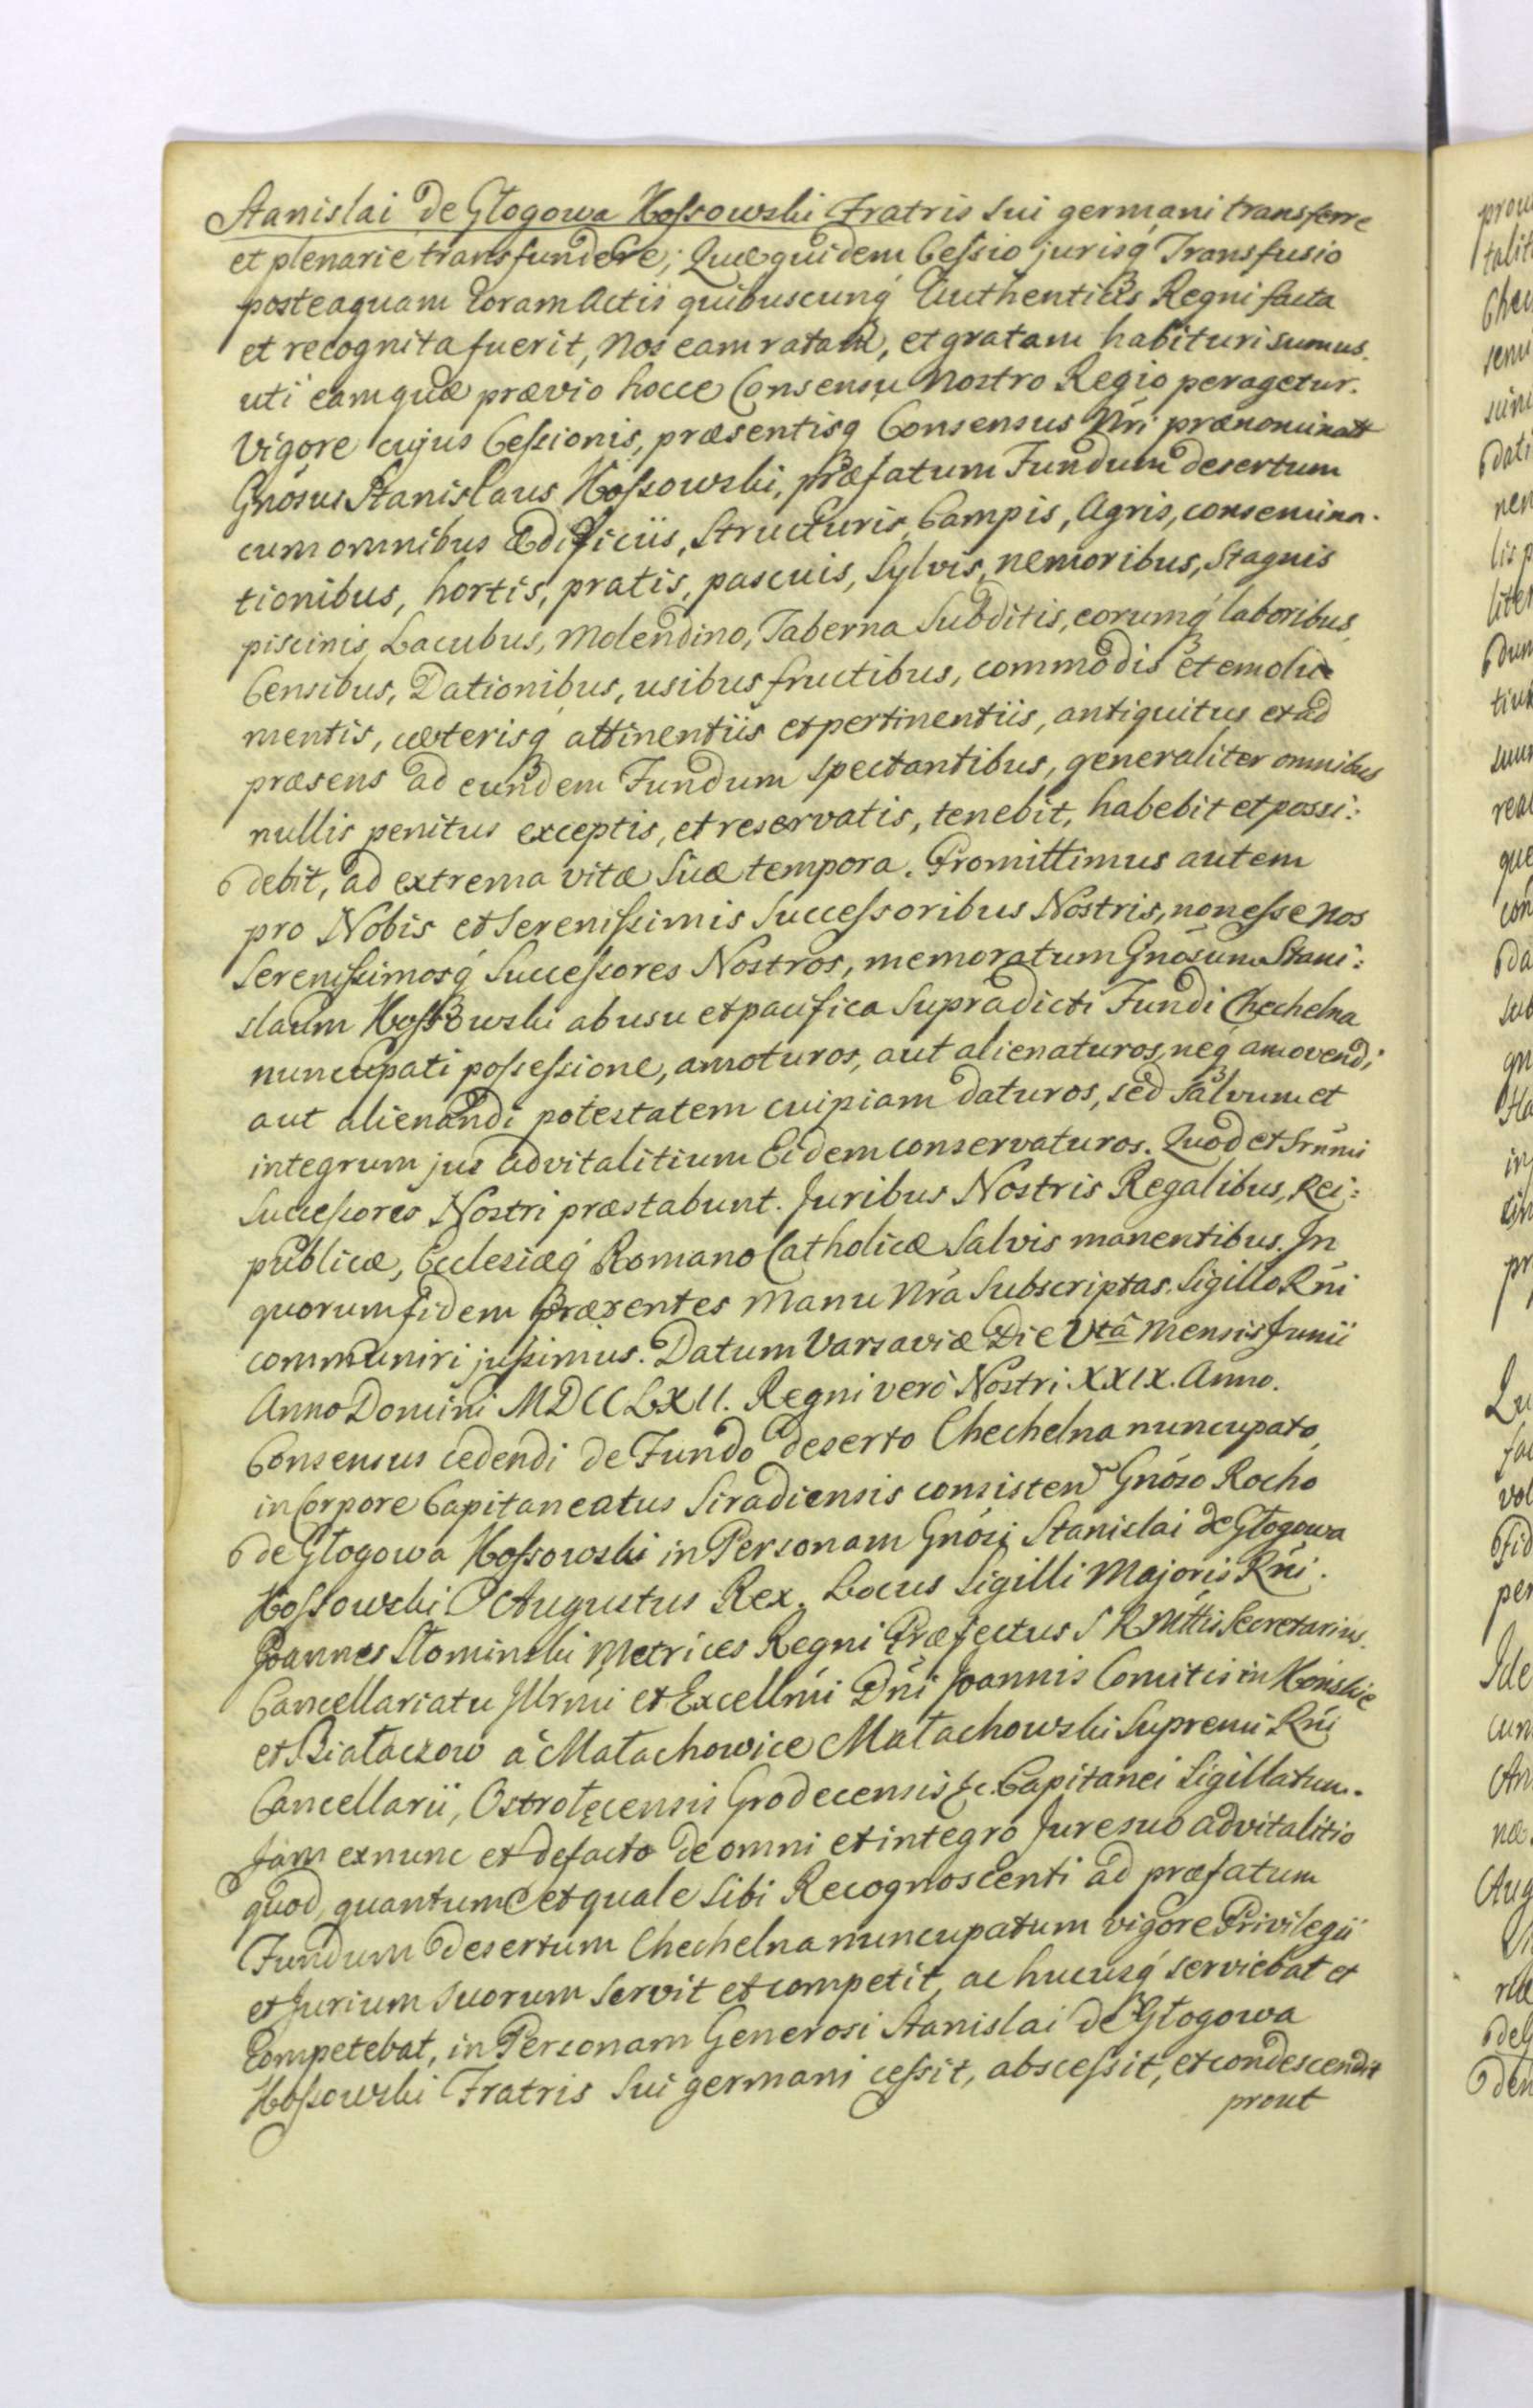 Stanislai de Głogowa Kossowski Fratris sui germani transferre
et plenarie transfundere; Quæ quidem Cessio jurisq́ Transfusio
posteaquam Coram Actis quibuscunq́ Authenticis Regni facta
et recognita fuerit, Nos eam ratam, et gratam habituri sumus.
uti eam quæ prævio hocce Consensu Nostro Regio peragetur.
Vigore cujus Cessionis, præsentisq́ Consensus Nr̃i prænominatt
Gnõsus Stanislaus Kossowski, præfatum Fundum desertum
cum omnibus Ædificiis, Structuris, Campis, Agris, consemina-
tionibus, hortis, pratis, pascuis, Sylvis, nemoribus, Stagnis
piscinis, Lacubus, Molendino, Taberna Subditis, eorumq́ laboribus
Censibus, Dationibus, usibus fructibus, commodis et emolu-
mentis, cæterisq́ attinentiis et pertinentiis, antiquitus et ad
præsens ad eundem Fundum spectantibus, generaliter omnibus
nullis penitus exceptis, et reservatis, tenebit, habebit et possi:
debit, ad extrema vitæ Suæ tempora. Promittimus autem
pro Nobis et Serenissimis Successoribus Nostris, non esse Nos
Serenissimosq́ Successores Nostros, memoratum Gnõsum Stani:
slaum Kossowski ab usu et pacifica Supradicti Fundi Chechelna
nuncupati possessione, amoturos, aut alienaturos, neq́ amovendi,
aut alienandi potestatem cuipiam daturos, sed salvum et
integrum jus advitalitium Eidem conservaturos. Quod et Srñmi
Successores Nostri præstabunt. Juribus Nostris Regalibus, Rei:
publicæ, Ecclesiæq́ Romano Catholicæ Salvis manentibus. In
quorum fidem Præsentes Manu Nrã Subscriptas. Sigillo Rñi
communiri jussimus. Datum Varsaviæ Die Vtâ Mensis Junii
Anno Domini MDCCLXII. Regni verò Nostri XXIX. Anno.
Consensus cedendi de Fundo deserto Chechelna nuncupato,
in Corpore Capitaneatus Siradiensis consisten̄ Gnõso Rocho
de Głogowa Kossowski in Personam Gnõsi Stanislai de Głogowa
Kossowski Augustus Rex. Locus Sigilli Majoris Rñi.
Joannes Słominski Metrices Regni Præfectus S R Mttis Secretarius.
Cancellariatu Jllrm̃i et Excellm̃i Dñi Joannis Comitis in Końskie
et Białaczow à Małachowice Małachowski Supremi Rñi
Cancellarii, Ostrołęcensis Grodecensis &c. Capitanei Sigillatum.
Jam exnunc et defacto de omni et integro Jure suo advitalitio
quod, quantum et quale Sibi Recognoscenti ad præfatum
Fundum desertum Chechelna nuncupatum vigore Privilegii
et Jurium suorum servit et competit, ac hucusq́ serviebat et
Competebat, in Personam Generosi Stanislai de Głogowa
Kossowski Fratris Sui germani cessit, abscessit, et condescendit
prout